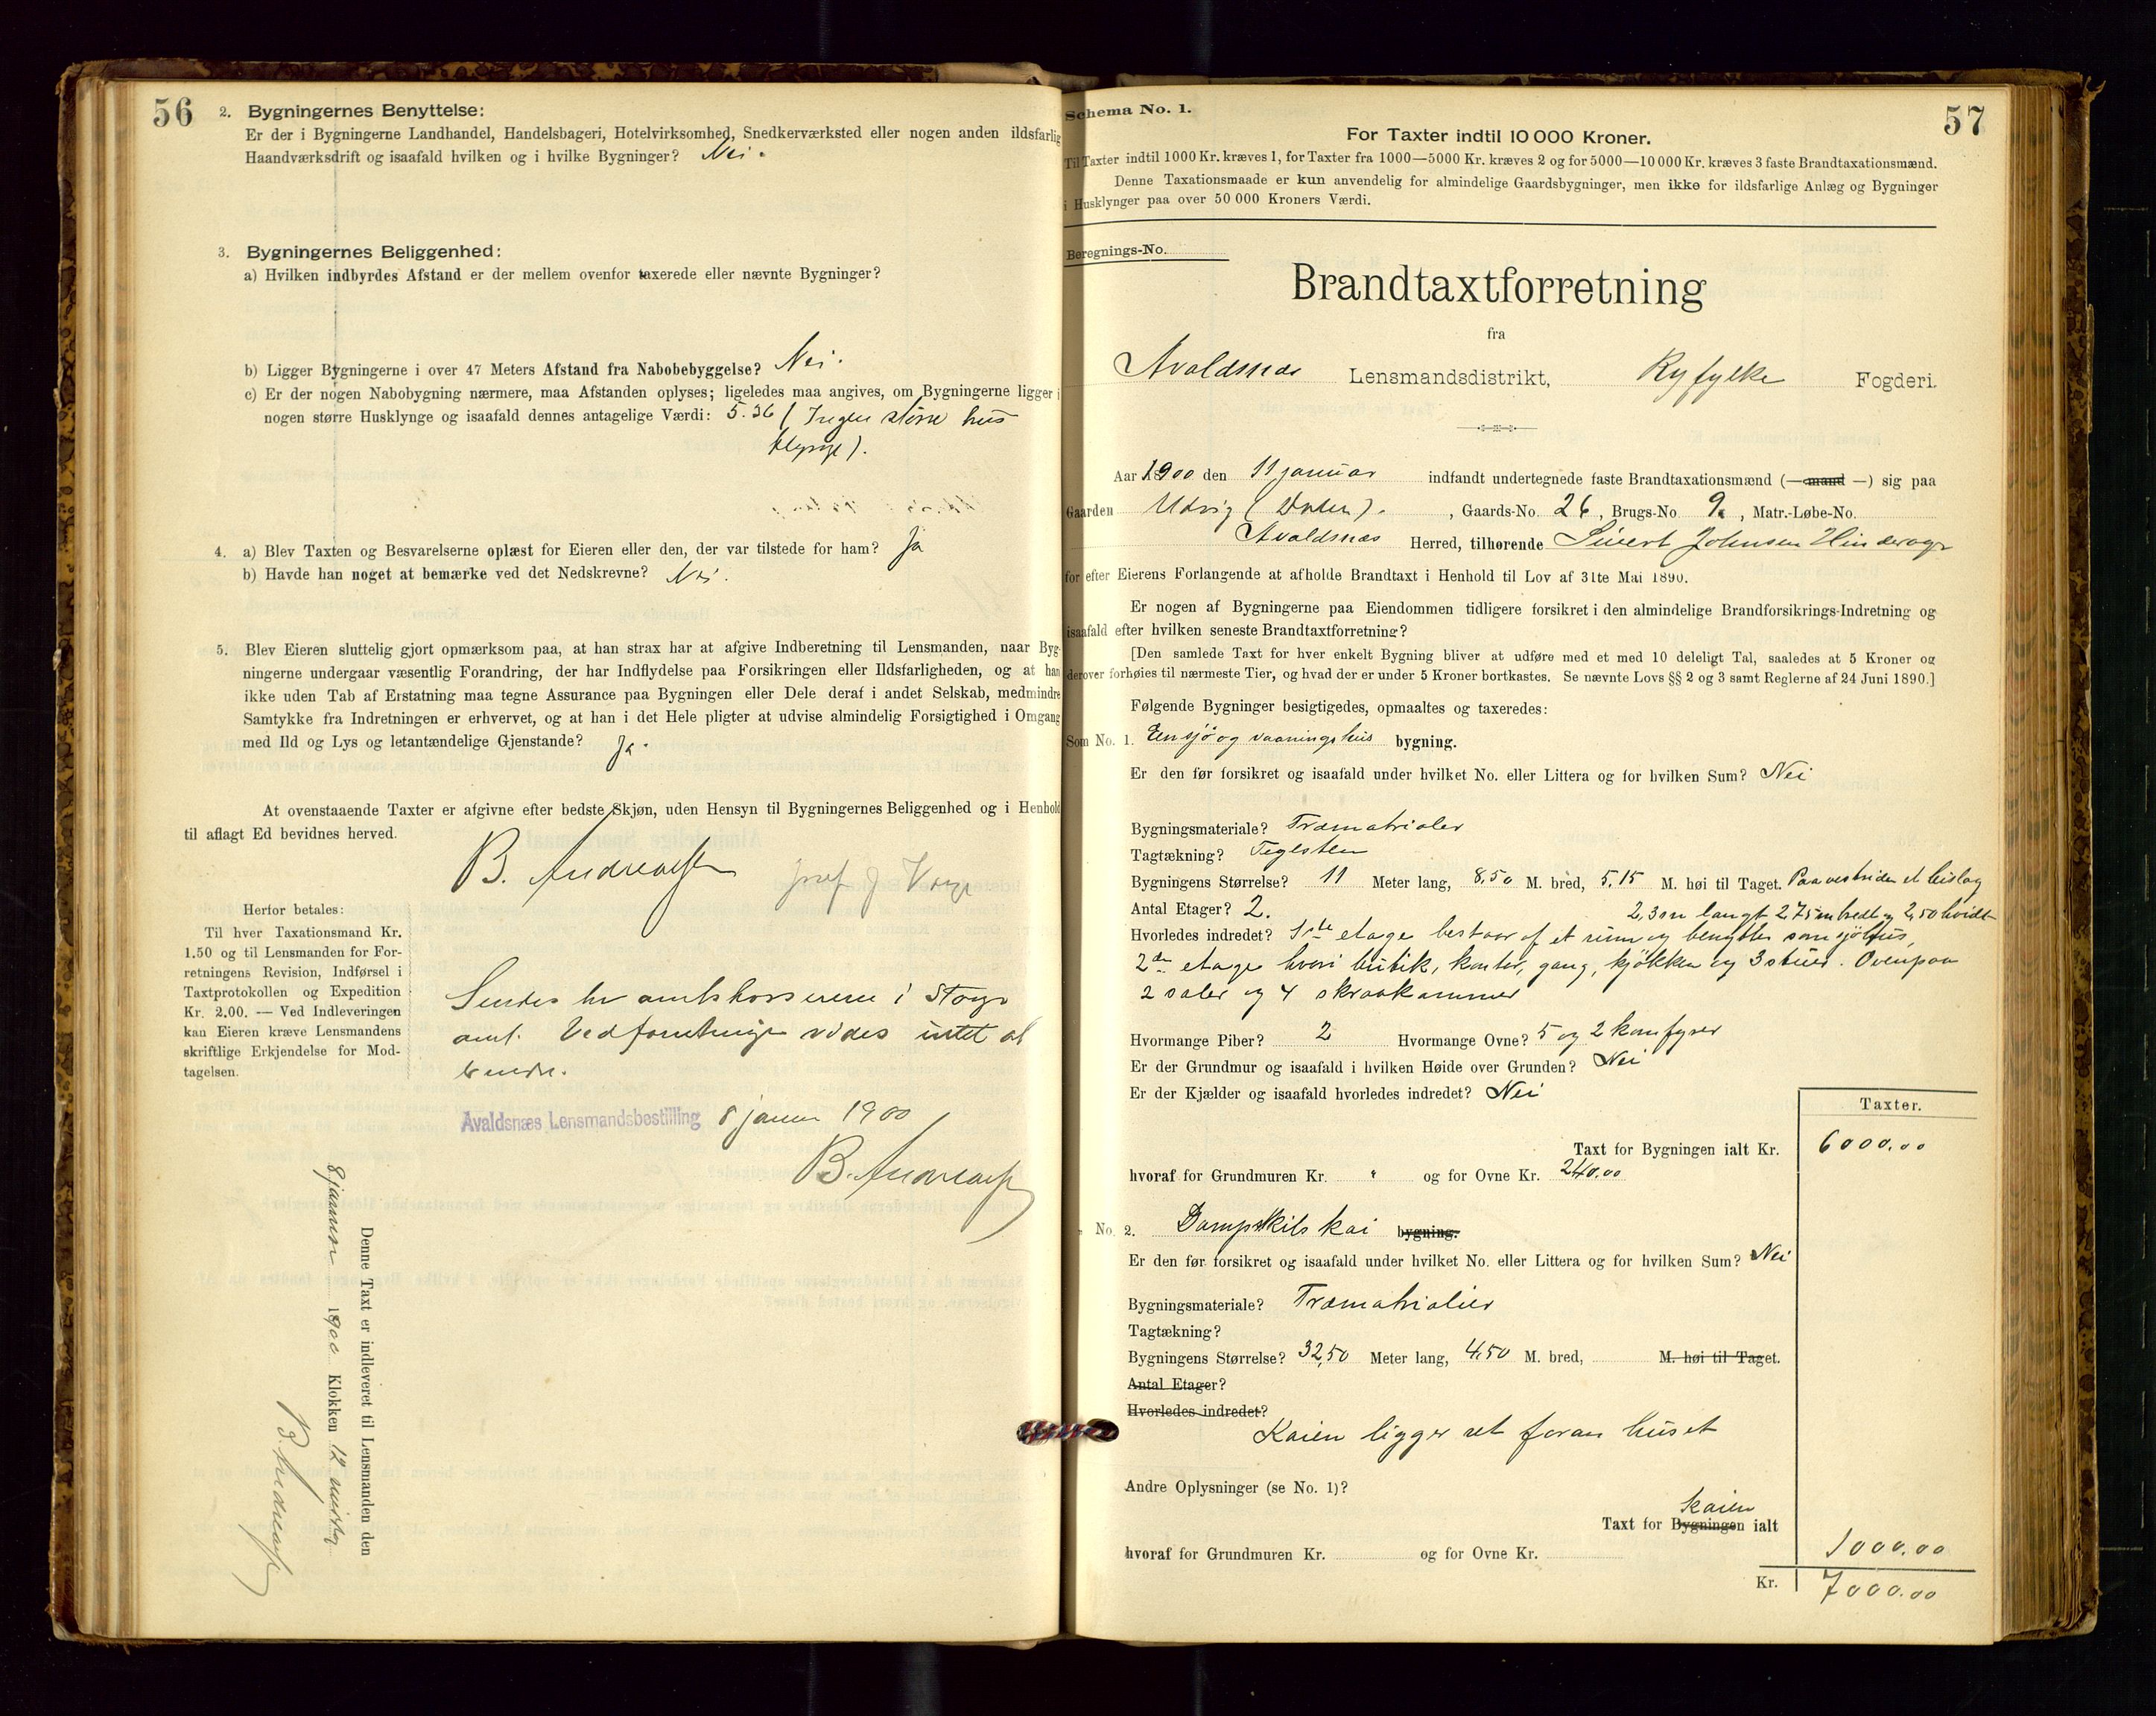 56
2. Bygningernes Benyttelse:
Er der i Bygningerne Landhandel, Handelsbageri, Hotelvirksomhed, Snedkerværksted eller nogen anden ildsfarlig
Haandværksdrift og isaafald hvilken og i hvilke Bygninger? Nei.
3. Bygningernes Beliggenhed:
a) Hvilken indbyrdes Afstand er der mellem ovenfor taxerede eller nævnte Bygninger?
b) Ligger Bygningerne i over 47 Meters Afstand fra Nabobebyggelse? Nei.
c) Er der nogen Nabobygning nærmere, maa Afstanden oplyses; ligeledes maa angives, om Bygningerne ligger i
nogen større Husklynge og isaafald dennes antagelige Værdi: 5.36 (Ingen større hus
klynge).
4. a) Blev Taxten og Besvarelserne oplæst for Eieren eller den, der var tilstede for ham? Ja
b) Havde han noget at bemærke ved det Nedskrevne? Nei.
5. Blev Eieren sluttelig gjort opmærksom paa, at han strax har at afgive Indberetning til Lensmanden, naar Byg-
ningerne undergaar væsentlig Forandring, der har Indflydelse paa Forsikringen eller Ildsfarligheden, og at han
ikke uden Tab af Erstatning maa tegne Assurance paa Bygningen eller Dele deraf i andet Selskab, medmindre
Samtykke fra Indretningen er erhvervet, og at han i det Hele pligter at udvise almindelig Forsigtighed i Omgang
med Ild og Lys og letantændelige Gjenstande? Ja.
At ovenstaaende Taxter er afgivne efter bedste Skjøn, uden Hensyn til Bygningernes Beliggenhed og i Henhold
til aflagt Ed bevidnes herved.
B. Andreassen
Herfor betales:
Til hver Taxationsmand Kr.
1.50 og til Lensmanden for For-
retningens Revision, Indførsel i
Taxtprotokollen og Expedition
Kr. 2.00. — Ved Indleveringen
kan Eieren kræve Lensmandens
skriftlige Erkjendelse for Mod-
tagelsen.
Sendes hr amtskassereren i Stav
amt. Ved forretningen vides intet at
Avaldsnæs Lensmandsbestilling 8 januar 1900
B. Andreassen
Denne Taxt er indleveret til Lensmanden den
8 januar 1900 Klokken 12 middag
B. Andreassen
57
Schema No. 1.
For Taxter indtil 10 000 Kroner.
Til Taxter indtil 1000 Kr. kræves 1, for Taxter fra 1000—5000 Kr. kræves 2 og for 5000—10 000 Kr. kræves 3 faste Brandtaxationsmænd.
Denne Taxationsmaade er kun anvendelig for almindelige Gaardsbygninger, men ikke for ildsfarlige Anlæg og Bygninger
i Husklynger paa over 50 000 Kroners Værdi.
Beregnings-No.
Brandtaxtforretning
fra
Avaldsnæs Lensmandsdistrikt, Ryfylke Fogderi.
Aar 1900 den 11 januar indfandt undertegnede faste Brandtaxationsmænd (— mand —) sig paa
Gaarden Udvig (Dalen). , Gaards-No. 26, Brugs-No. 9, Matr.-Løbe-No.
Avaldsnæs Herred, tilhørende Sivert Johnsen Hinderage
for efter Eierens Forlangende at afholde Brandtaxt i Henhold til Lov af 31te Mai 1890.
Er nogen af Bygningerne paa Eiendommen tidligere forsikret i den almindelige Brandforsikrings-Indretning og
isaafald efter hvilken seneste Brandtaxtforretning?
[Den samlede Taxt for hver enkelt Bygning bliver at udføre med et med 10 deleligt Tal, saaledes at 5 Kroner og
derover forhøies til nærmeste Tier, og hvad der er under 5 Kroner bortkastes. Se nævnte Lovs §§ 2 og 3 samt Reglerne af 24 Juni 1890.]
Følgende Bygninger besigtigedes, opmaaltes og taxeredes:
Som No. 1. En sjø og vaaningshus bygning.
Er den før forsikret og isaafald under hvilket No. eller Littera og for hvilken Sum? Nei
Bygningsmateriale? Træmatrialer
Tagtækning? Teglsten
Bygningens Størrelse? 11 Meter lang, 8,50 M. bred, 5,15 M. høi til Taget. Paa vestsiden et bislag
Antal Etager? 2. 2,3 m langt 2,75 m bredt og 2,50 høidt
Hvorledes indredet? 1ste etage bestaar af et rum og benyttes som sjøhus,
2den etage hvori butik, kontor, gang, kjøkken og 3 stuer. Ovenpaa
2 saler og 4 skraakammer
Hvormange Piber? 2 Hvormange Ovne? 5 og 2 komfyrer
Er der Grundmur og isaafald i hvilken Høide over Grunden? Nei
Er der Kjælder og isaafald hvorledes indredet? Nei
Taxter.
Taxt for Bygningen ialt Kr. 6000.00
hvoraf for Grundmuren Kr. " og for Ovne Kr. 240.00
" No. 2. Dampskibskai bygning.
Er den før forsikret og isaafald under hvilket No. eller Littera og for hvilken Sum? Nei
Bygningsmateriale? Træmatrialier
Tagtækning?
Bygningens Størrelse? 32,50 Meter lang, 4,50 M. bred, M. høi til Taget.
Antal Etager?
Hvorledes indredet?
Kaien ligger ret foran huset
Andre Oplysninger (se No. 1)?
kaien
Taxt for Bygningen ialt 1000.00
hvoraf for Grundmuren Kr. og for Ovne Kr.
Kr. 7000.00